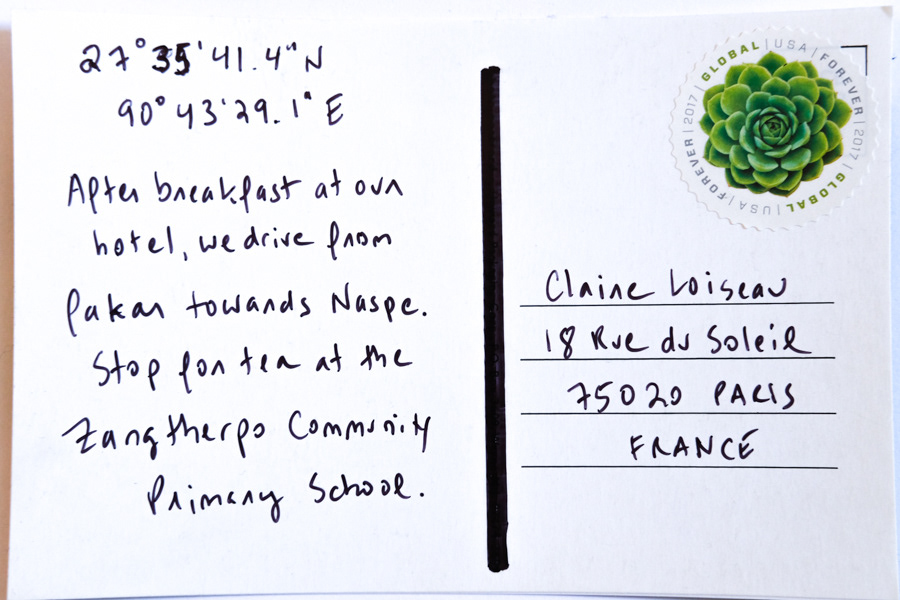 27°35'41.4"N
90°43'29.1"E
After breakfast at our
hotel, we drive from
Pakar towards Naspe.
Stop for tea at the
Zangtherpo Community
Primary School.
GLOBAL | USA | FOREVER | 2017 | GLOBAL | USA | FOREVER | 2017 |
Claire Loiseau
18 Rue du Soleil
75020 PARIS
FRANCE